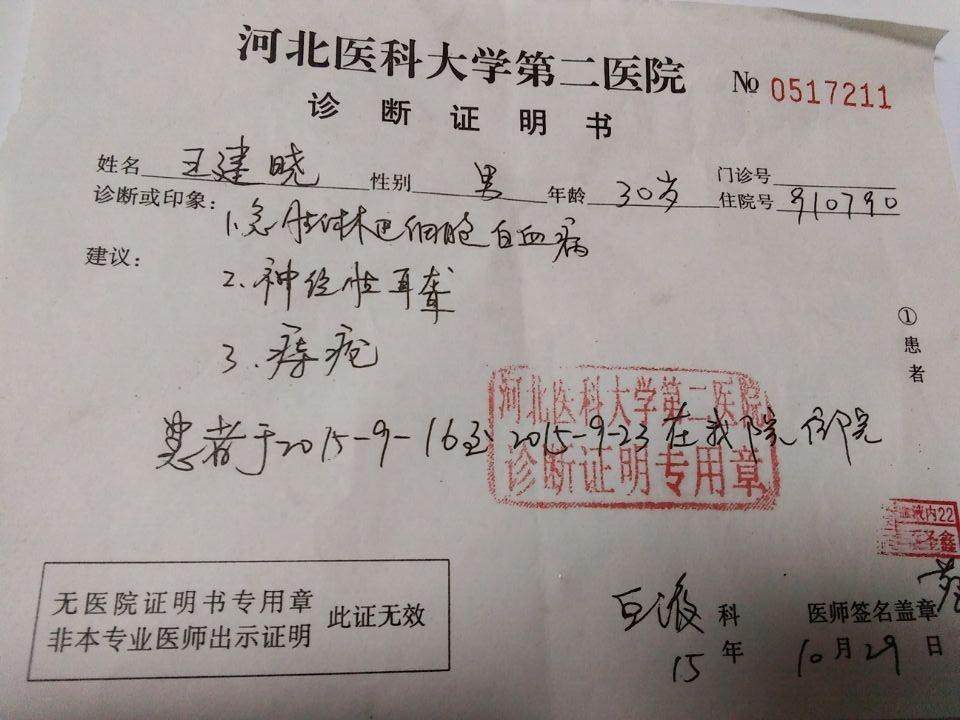 河北医科大学第二医院
№ 0517211
诊断证明书
姓名 王建晓 性别 男 年龄 30岁 门诊号
住院号 910790
诊断或印象：
1.急性淋巴细胞白血病
建议：
2.神经性耳聋
3.痔疮
①患者
患者于2015-9-16至2015-9-23在我院住院
河北医科大学第二医院
诊断证明专用章
血液内22
圣鑫
无医院证明书专用章
非本专业医师出示证明
此证无效
科 医师签名盖章
15年 10月29日